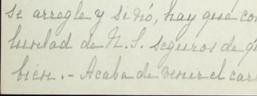 se arregle y si nó, hay que con
luntad de N. S. seguros de q
bien. - Acaba de venir el car